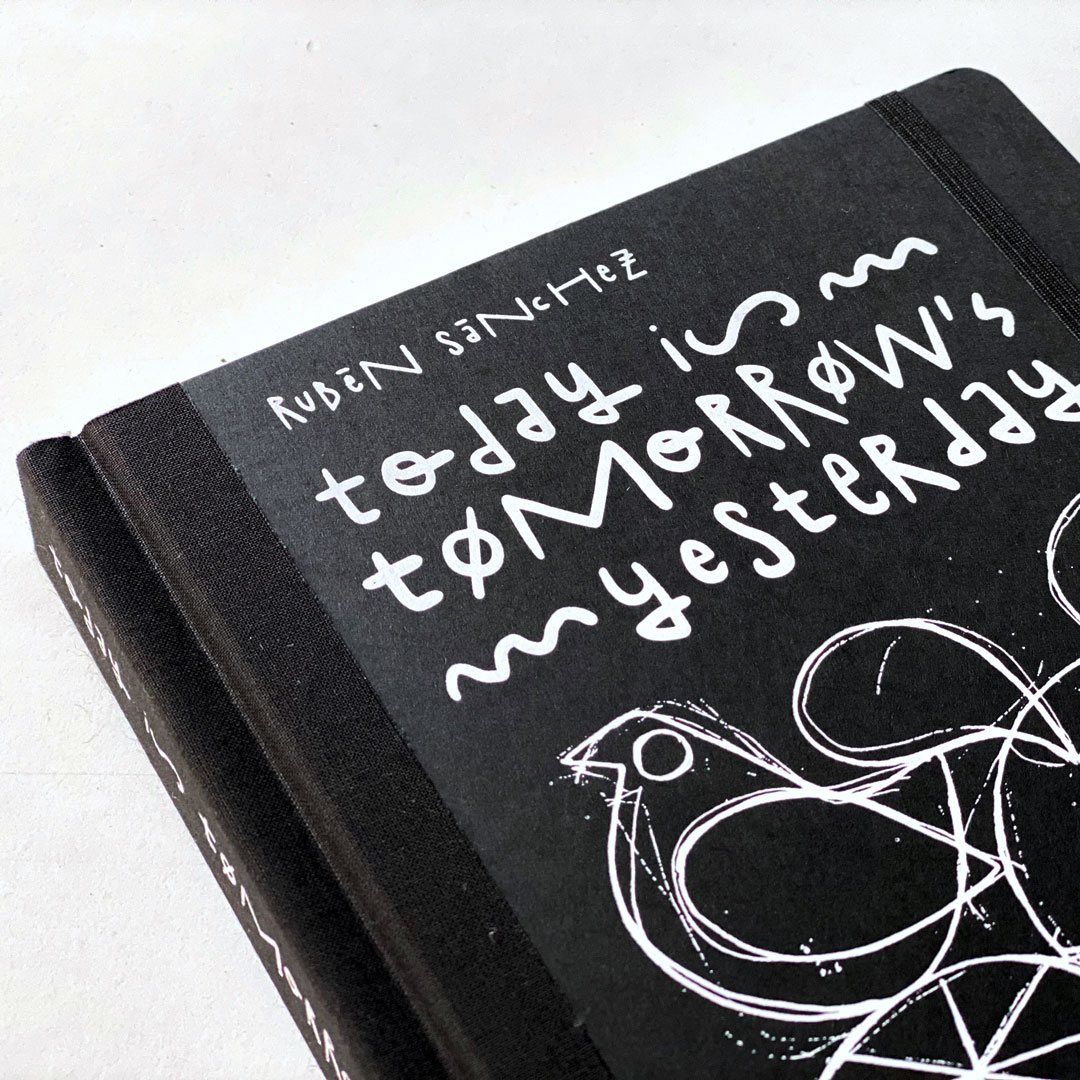 RUBēN SāNcHeZ
today is
tØMoRRØW's
yesteRday
today is tØMoRR